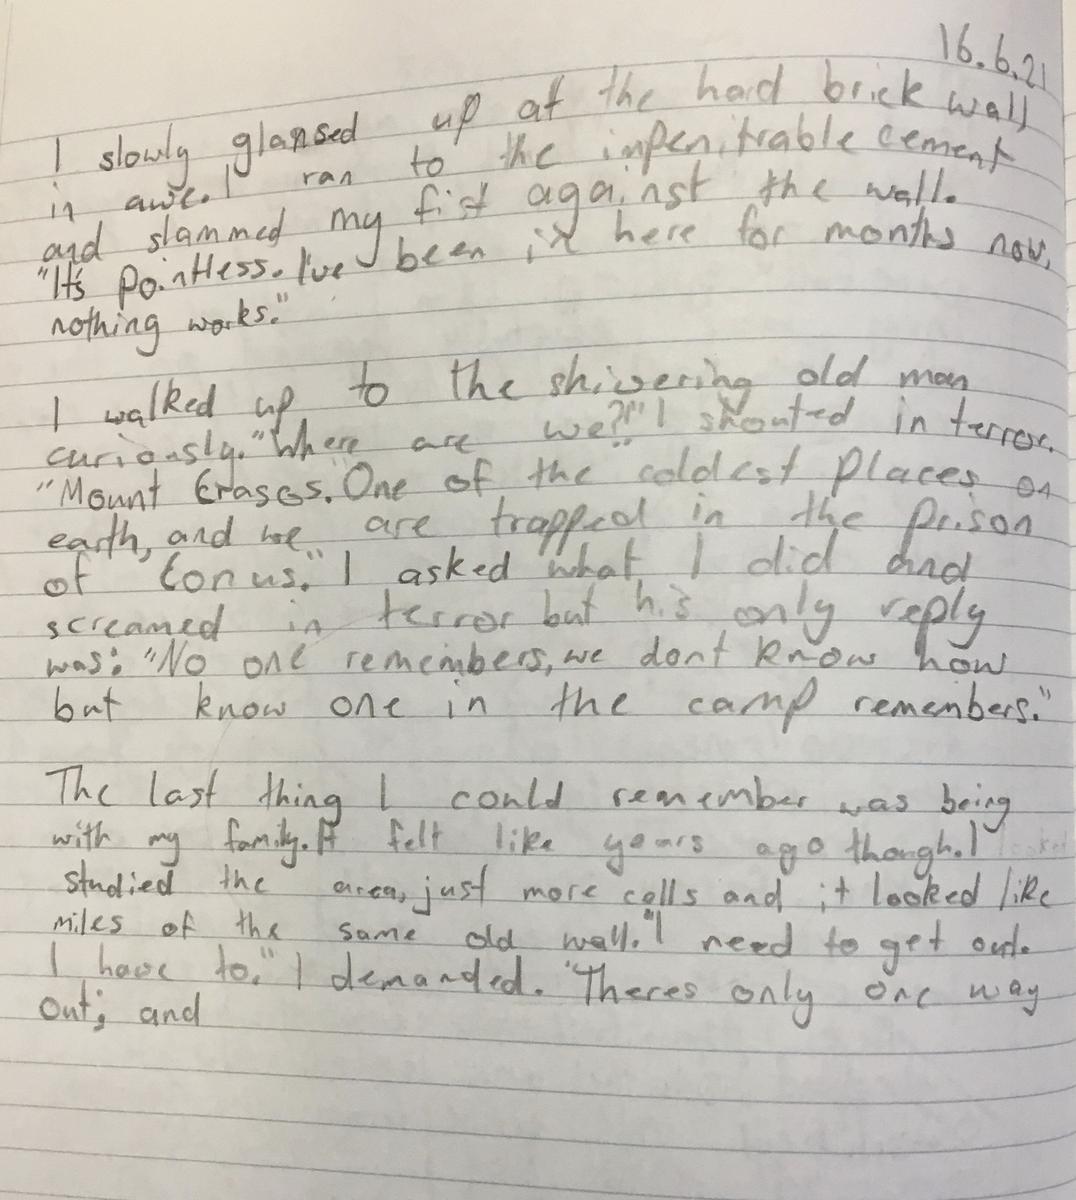 16.6.21
I slowly glansed up at the hard brick wall
in awe. I ran to the inpenitrable cement
and slammed my fist against the wall.
"It's pointless. I've been in here for months now,
nothing works."
I walked up to the shivering old man
curiously. "Where are we?!" I shouted in terror.
"Mount Erases. One of the coldest places on
earth, and we are trapped in the prison
of Conus." I asked what I did and
screamed in terror but his only reply
was: "No one remembers, we dont know how
but know one in the camp remembers."
The last thing I could remember was being
with my family. It felt like years ago though. I
studied the area, just more cells and it looked like
miles of the same old wall. "I need to get out.
I have to." I demanded. "Theres only one way
out; and